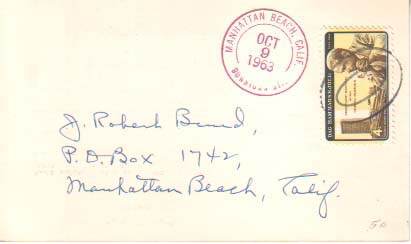 MANHATTAN BEACH, CALIF.
OCT
9
1963
DAG HAMMARSKJOLD
4¢
J. Robert
P.O. Box 1742,
Manhattan Beach, Calif.
50